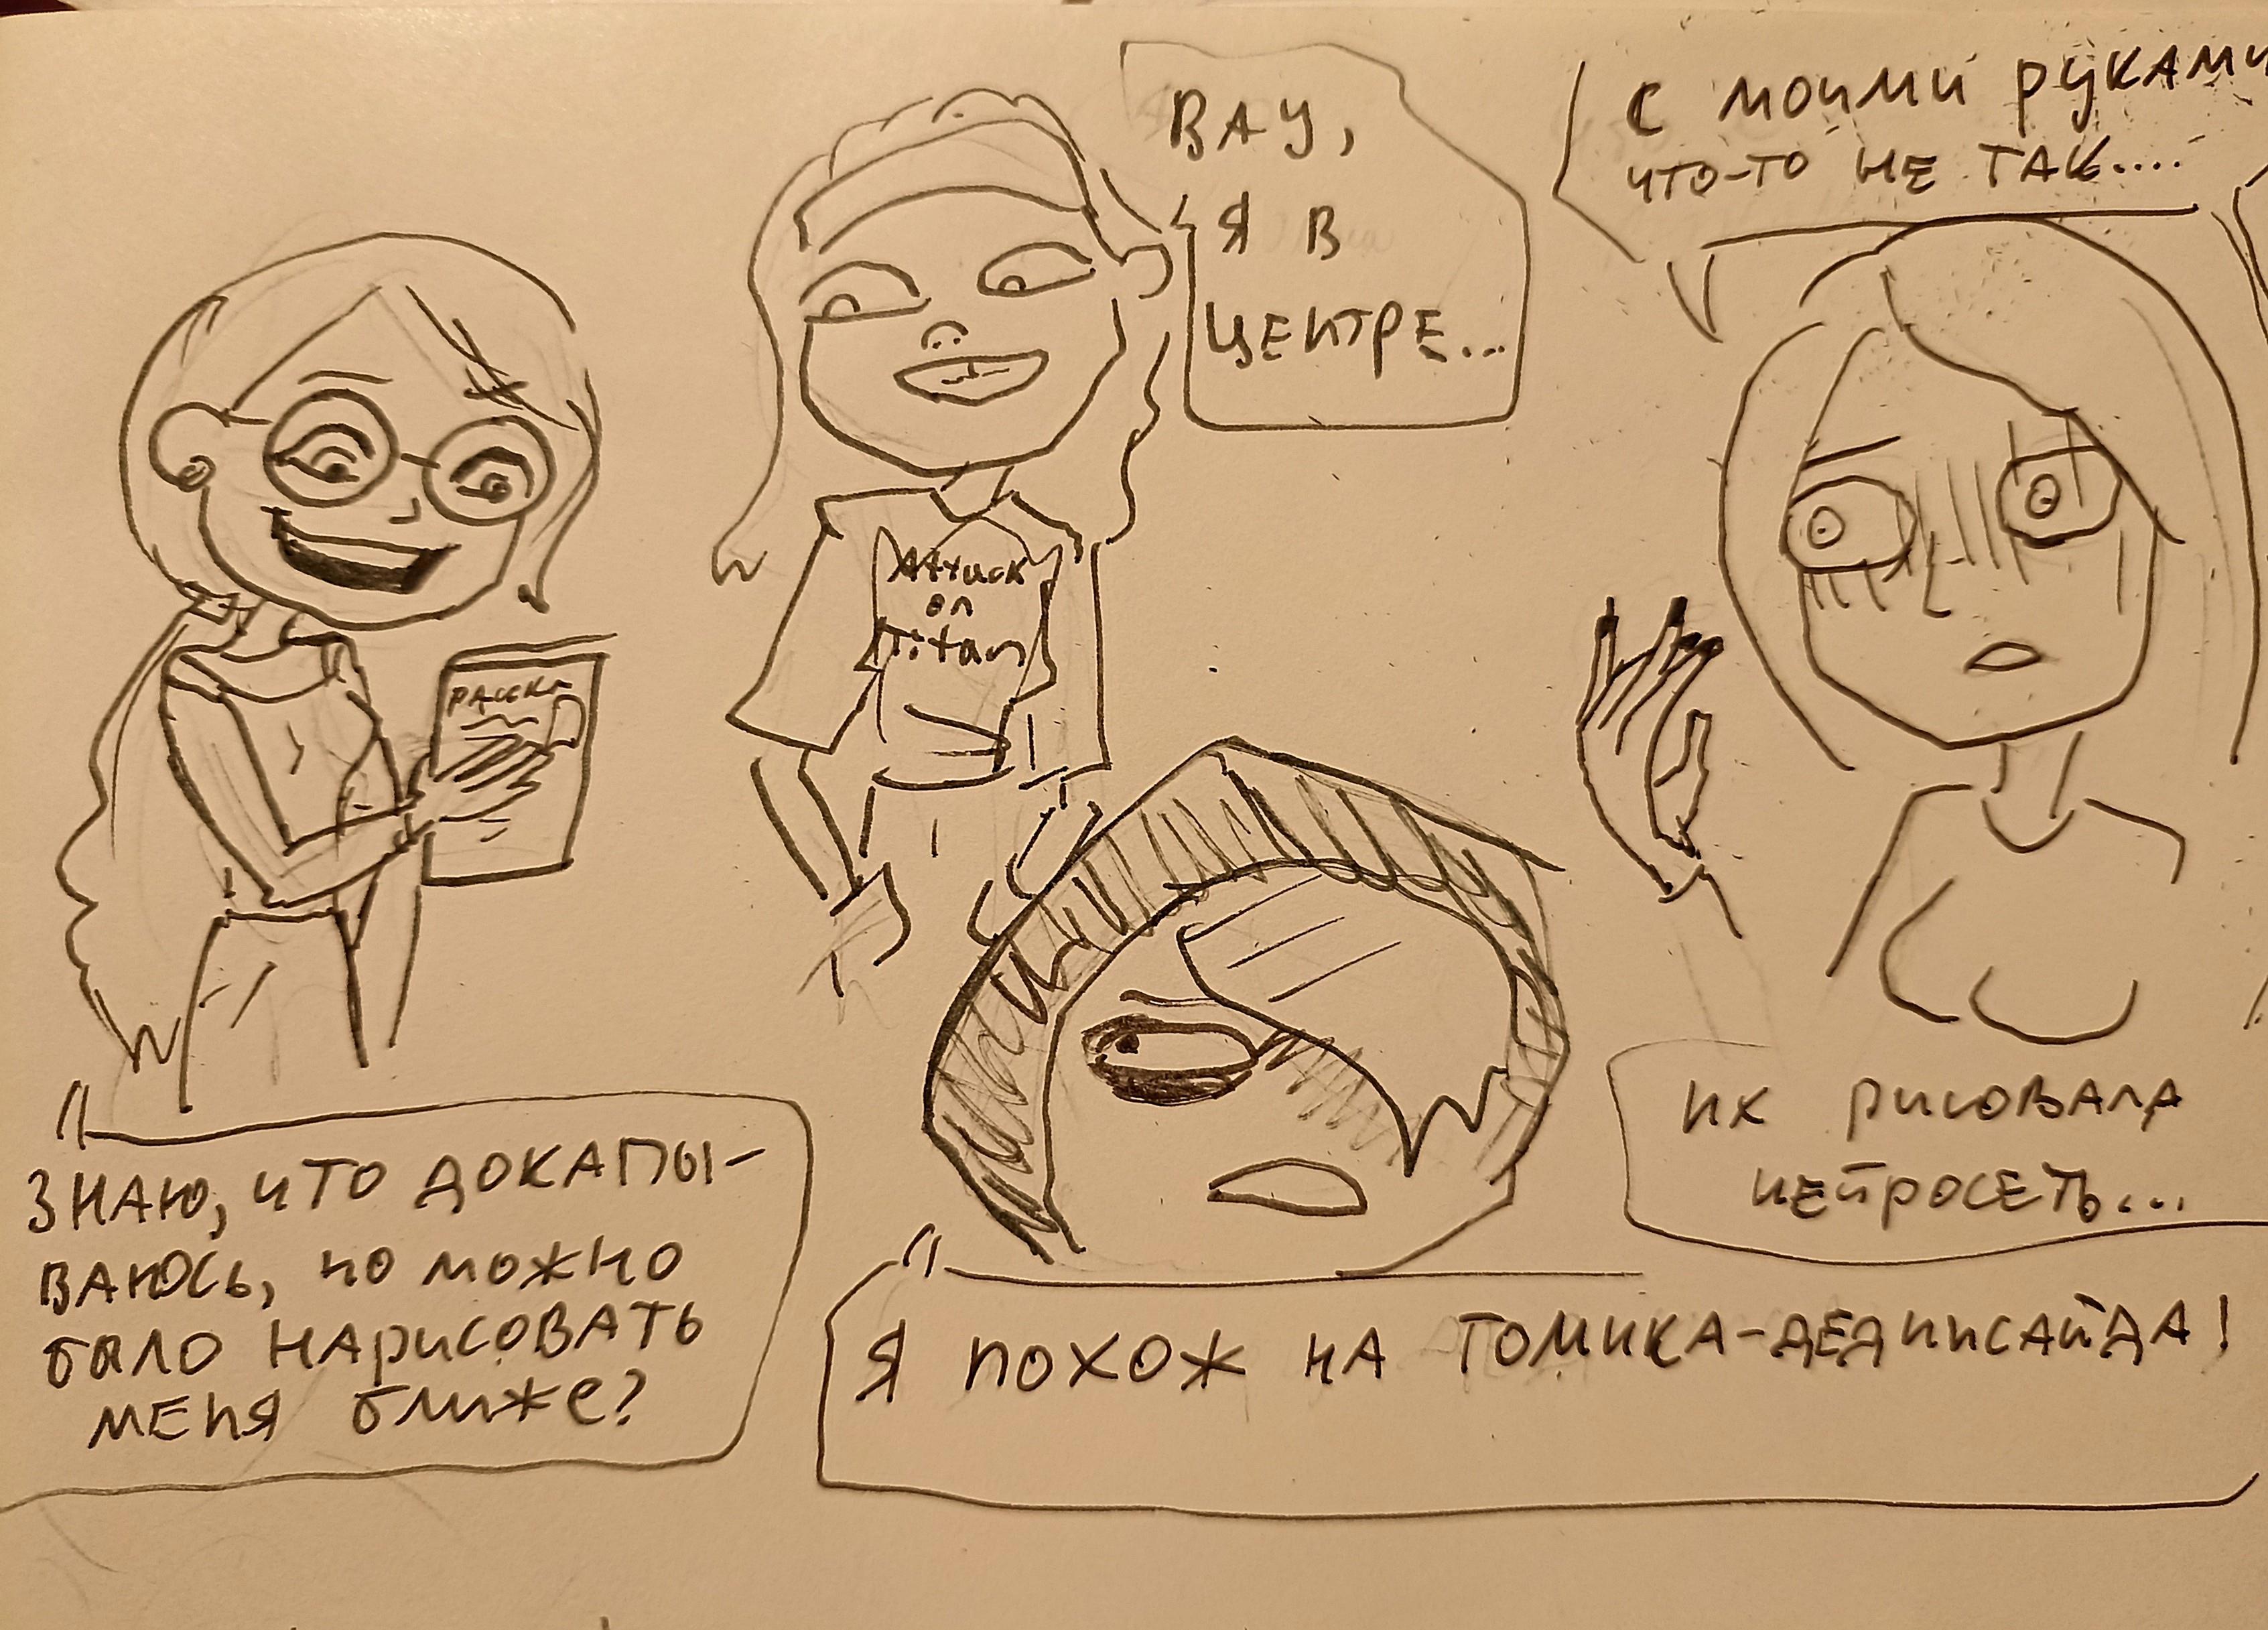 ВАУ,
Я В
ЦЕНТРЕ...
С МОИМИ РУКАМИ
ЧТО-ТО НЕ ТАК....
Attack
on
Titan
РАССКА
ИХ РИСОВАЛА
НЕЙРОСЕТЬ...
ЗНАЮ, ЧТО ДОКАПЫ-
ВАЮСЬ, НО МОЖНО
БЫЛО НАРИСОВАТЬ
МЕНЯ БЛИЖЕ?
Я ПОХОЖ НА ТОМИКА-ДЕДИНСАЙДА!